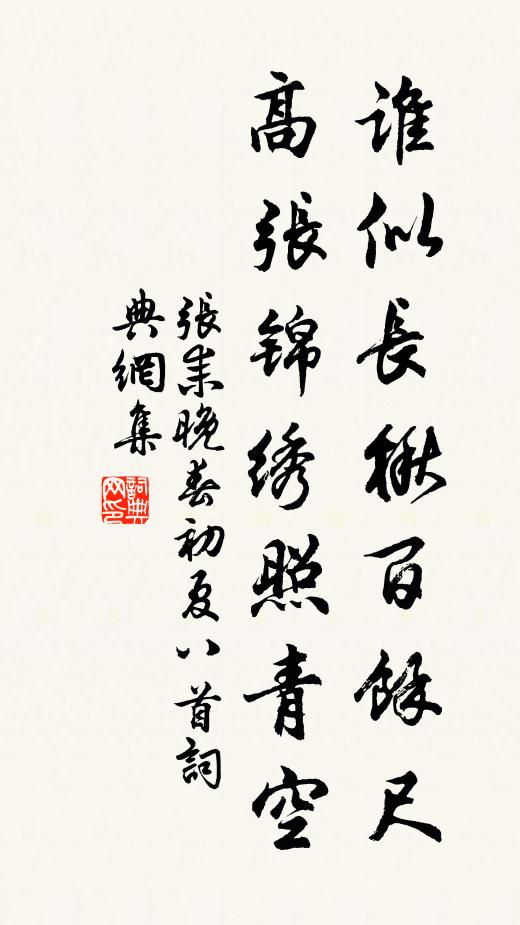 誰似長楸百餘尺
高張錦綉照青空
張耒晚春初夏八首詞
典網集
詞典网印